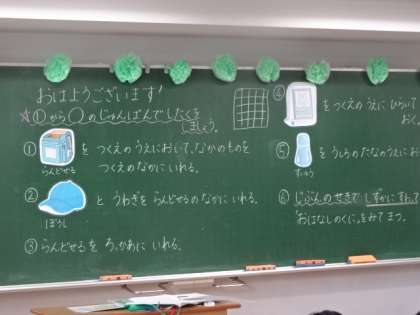 おはようございます!
☆①から◯のじゅんばんでしたくを
しましょう。
① をつくえのうえにおいて、なかのものを
つくえのなかにいれる。
らんどせる
② とうわぎをらんどせるのなかにいれる。
ぼうし
③らんどせるをろっかあにいれる。
④ をつくえのうえにひらいて
おく。
⑤ をうしろのたなのうえにお
すいとう
⑥じぶんのせきでしずかにすわって
"おはなしのくに"をみてまつ。